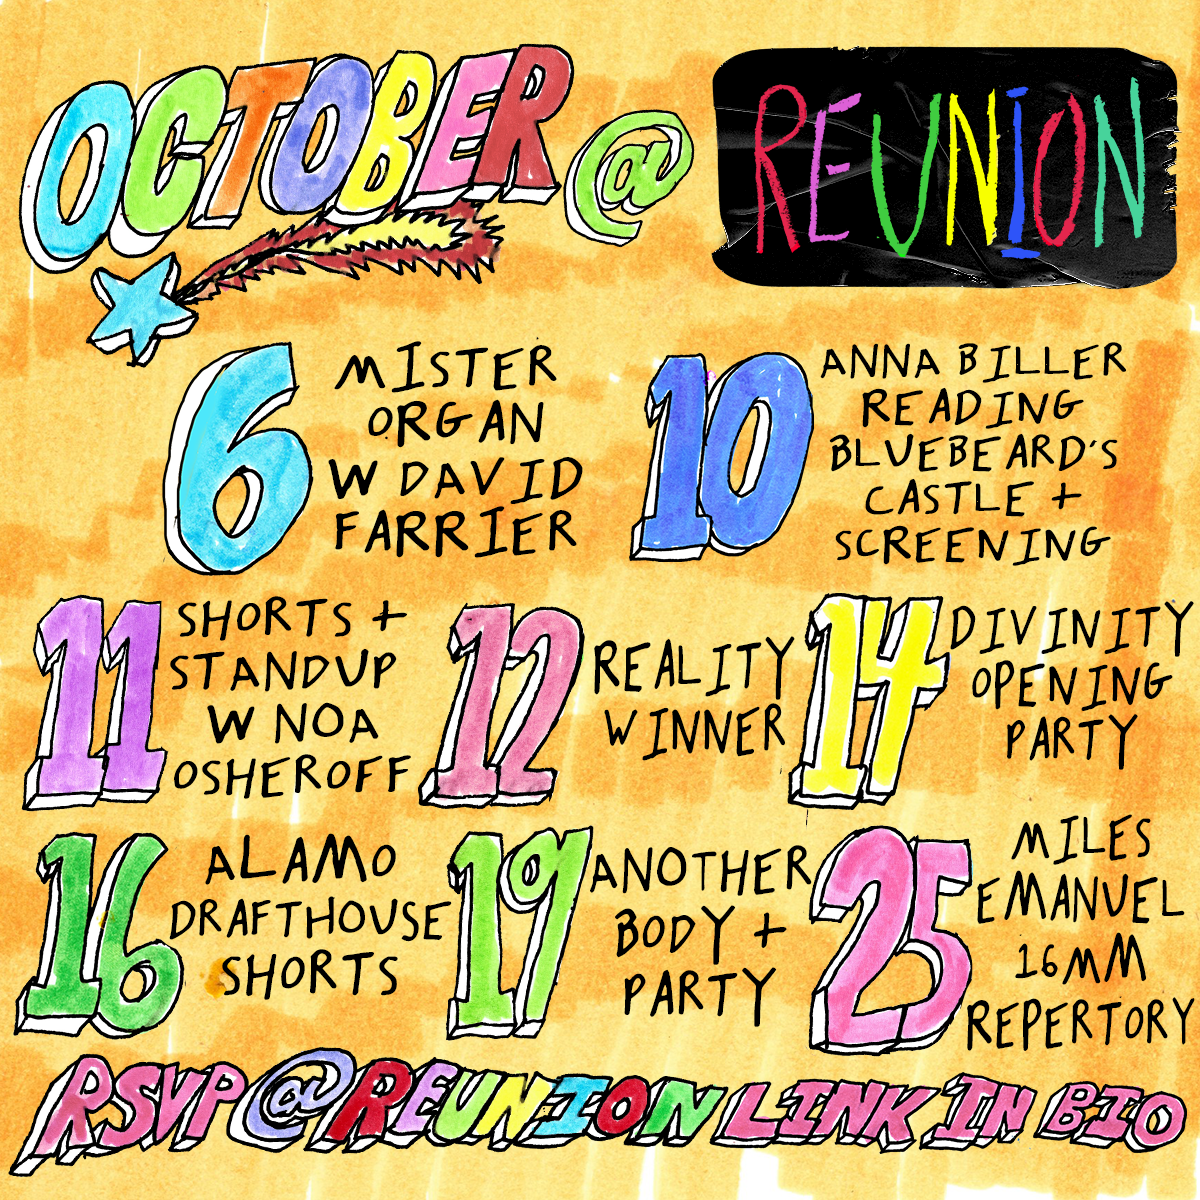 OCTOBER @ REUNION
6
MISTER
ORGAN
W DAVID
FARRIER
10
ANNA BILLER
READING
BLUEBEARD'S
CASTLE +
SCREENING
11
SHORTS +
STANDUP
W NOA
OSHEROFF
12
REALITY
WINNER
14
DIVINITY
OPENING
PARTY
16
ALAMO
DRAFTHOUSE
SHORTS
19
ANOTHER
BODY +
PARTY
25
MILES
EMANUEL
16MM
REPERTORY
RSVP @REUNION LINK IN BIO